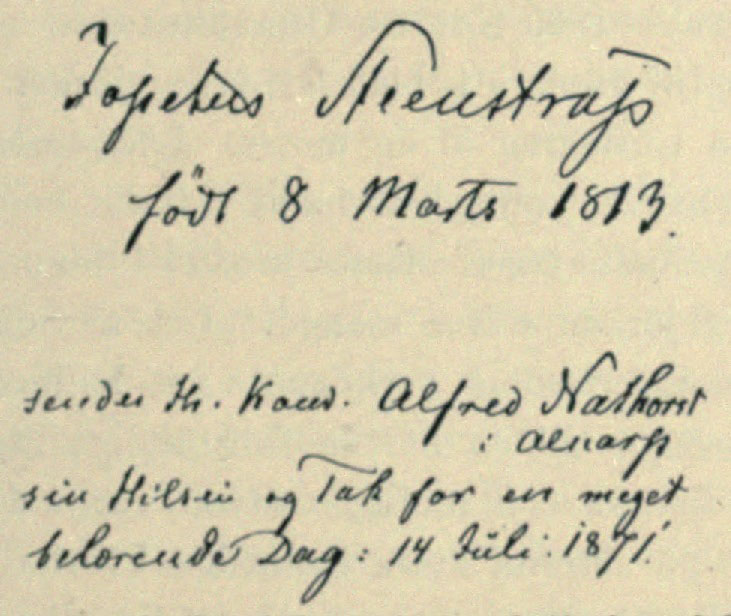 Japetus Steenstrup
född 8 Marts 1813.
sender Hr. Kand. Alfred Nathorst
i Alnarp
sin Hilsen og Tak for en meget
belærende Dag: 14 Juli. 1871.